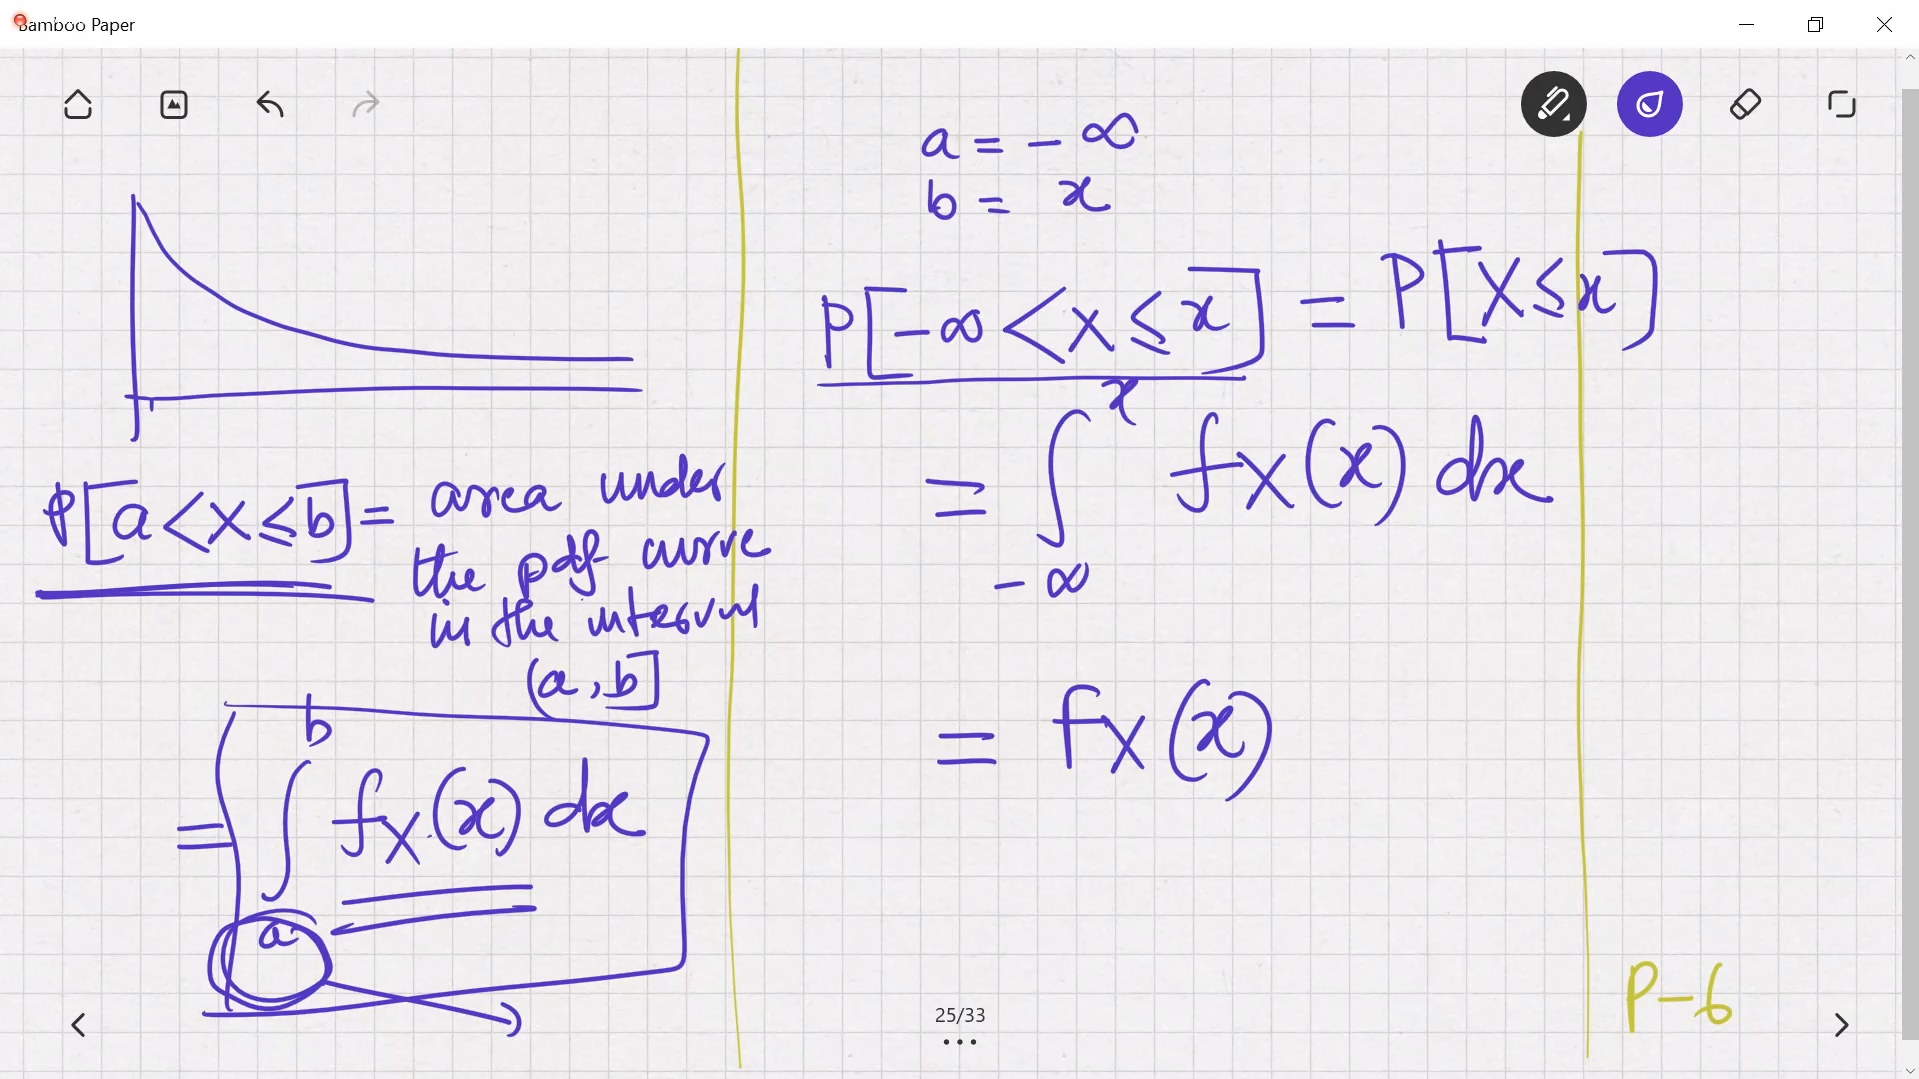 Bamboo Paper
P[a < X ≤ b] = area under
the pdf curve
in the interval
(a, b]
= ∫_a^b f_X(x) dx
a = - ∞
b = x
P[-∞ < X ≤ x] = P[X ≤ x]
= ∫_{-∞}^x f_X(x) dx
= f_X(x)
P-6
25/33